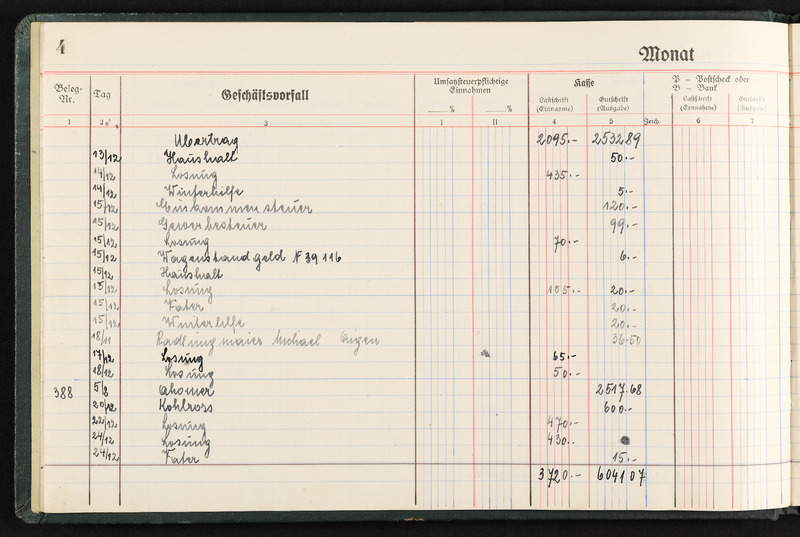 4
Monat
Beleg-Nr. Tag Geschäftsvorfall Umsatzsteuerpflichtige Einnahmen Kasse P = Postscheck oder B = Bank
% % Lastschrift (Einnahme) Gutschrift (Ausgabe) Zeich. Lastschrift (Einnahme) Gutschrift (Ausgabe)
1 2 3 I II 4 5 6 7
Übertrag 2095.- 253289
13/12 Haushalt 50.-
14/12 Losung 435.-
14/12 Winterhilfe 5.-
15/12 Einkommensteuer 120.-
15/12 Gewerbesteuer 99.-
15/12 Losung 70.-
15/12 Wagenstandgeld N 39116 6.-
15/12 Haushalt
15/12 Losung 105.- 20.-
15/12 Vater 20.-
15/12 Winterhilfe 20.-
18/11 Radlingmaier Michael Aigen 36.50
17/12 Losung 65.-
18/12 Losung 50.-
388 5/8 Ahorner 2517.68
20/12 Kohlross 600.-
22/12 Losung 470.-
24/12 Losung 430.-
24/12 Vater 15.-
3720.- 604107